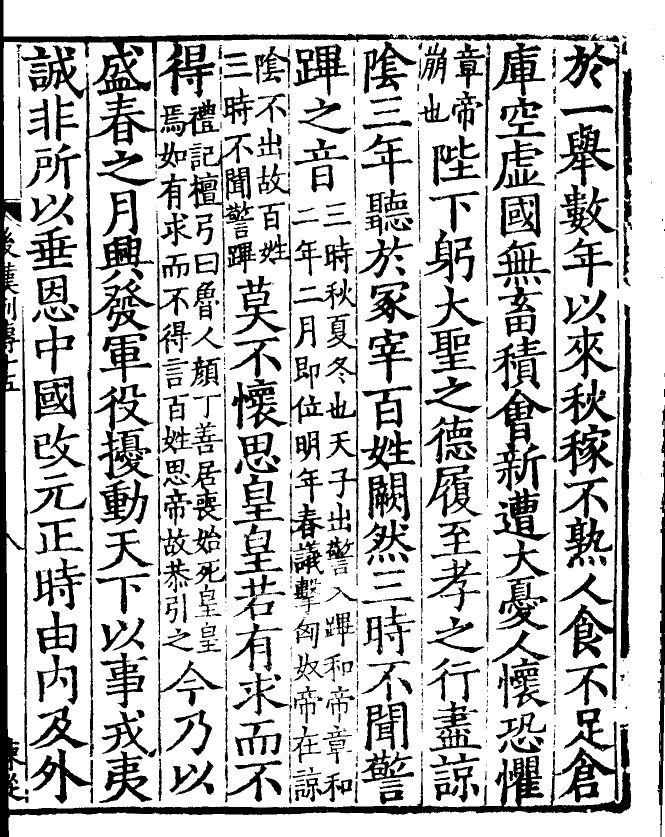 於一舉數年以來秋稼不熟人食不足倉
庫空虛國無畜積會新遭大憂人懷恐懼
章帝
崩也
陛下躬大聖之德履至孝之行盡諒
陰三年聽於冢宰百姓闕然三時不聞警
蹕之音
三時秋夏冬也天子出警入蹕和帝章和
二年二月即位明年春議擊匈奴帝在諒
陰不出故百姓
三時不聞警蹕
莫不懷思皇皇若有求而不
得
禮記檀弓曰魯人顏丁善居喪始死皇皇
焉如有求而不得言百姓思帝故恭引之
今乃以
盛春之月興發軍役擾動天下以事戎夷
誠非所以垂恩中國改元正時由內及外
後漢列傳十五
八